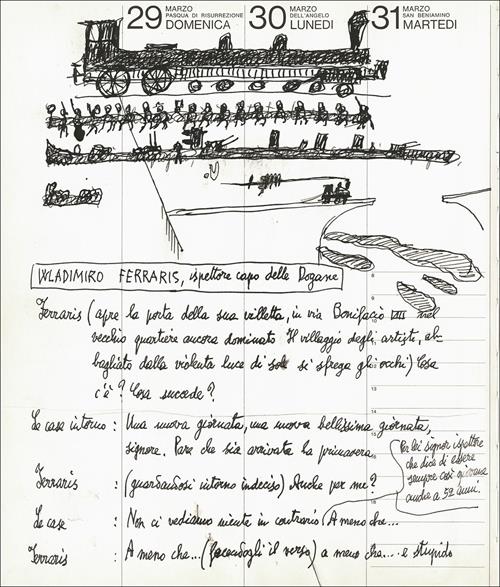 29 MARZO PASQUA DI RISURREZIONE DOMENICA
30 MARZO DELL'ANGELO LUNEDI
31 MARZO SAN BENIAMINO MARTEDI
WLADIMIRO FERRARIS, ispettore capo delle Dogane
Ferraris (apre la porta della sua villetta, in via Bonifacio VIII nel
vecchio quartiere ancora dominato Il villaggio degli artisti, ab-
bagliato dalla violenta luce di sole si sfrega gli occhi) Cosa
c'è? Cosa succede?
Le case intorno : Una nuova giornata, una nuova bellissima giornata,
signore. Pare che sia arrivata la primavera
Per lei signor ispettore
che dice di essere
sempre così giovane
anche a 52 anni.
Ferraris : (guardandosi intorno indeciso) Anche per me?
Le case : Non ci vediamo niente in contrario. A meno che...
Ferraris : A meno che... (facendogli il verso) a meno che... è stupido
8
9
10
11
12
13
14
15